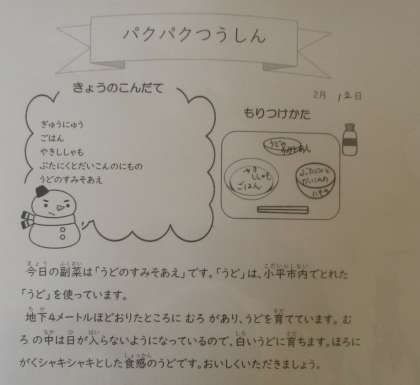 パクパクつうしん
2月 12日
きょうのこんだて
ぎゅうにゅう
ごはん
やきししゃも
ぶたにくとだいこんのにもの
うどのすみそあえ
もりつけかた
うどの
すみそあえ
やき
ししゃも
ごはん
ぶたにくと
だいこんの
にもの
今日の副菜は「うどのすみそあえ」です。「うど」は、小平市内でとれた
「うど」を使っています。
地下4メートルほどおりたところに むろ があり、うどを育てています。 む
ろ の中は日が入らないようになっているので、白いうどに育ちます。ほろに
がくシャキシャキとした食感のうどです。おいしくいただきましょう。